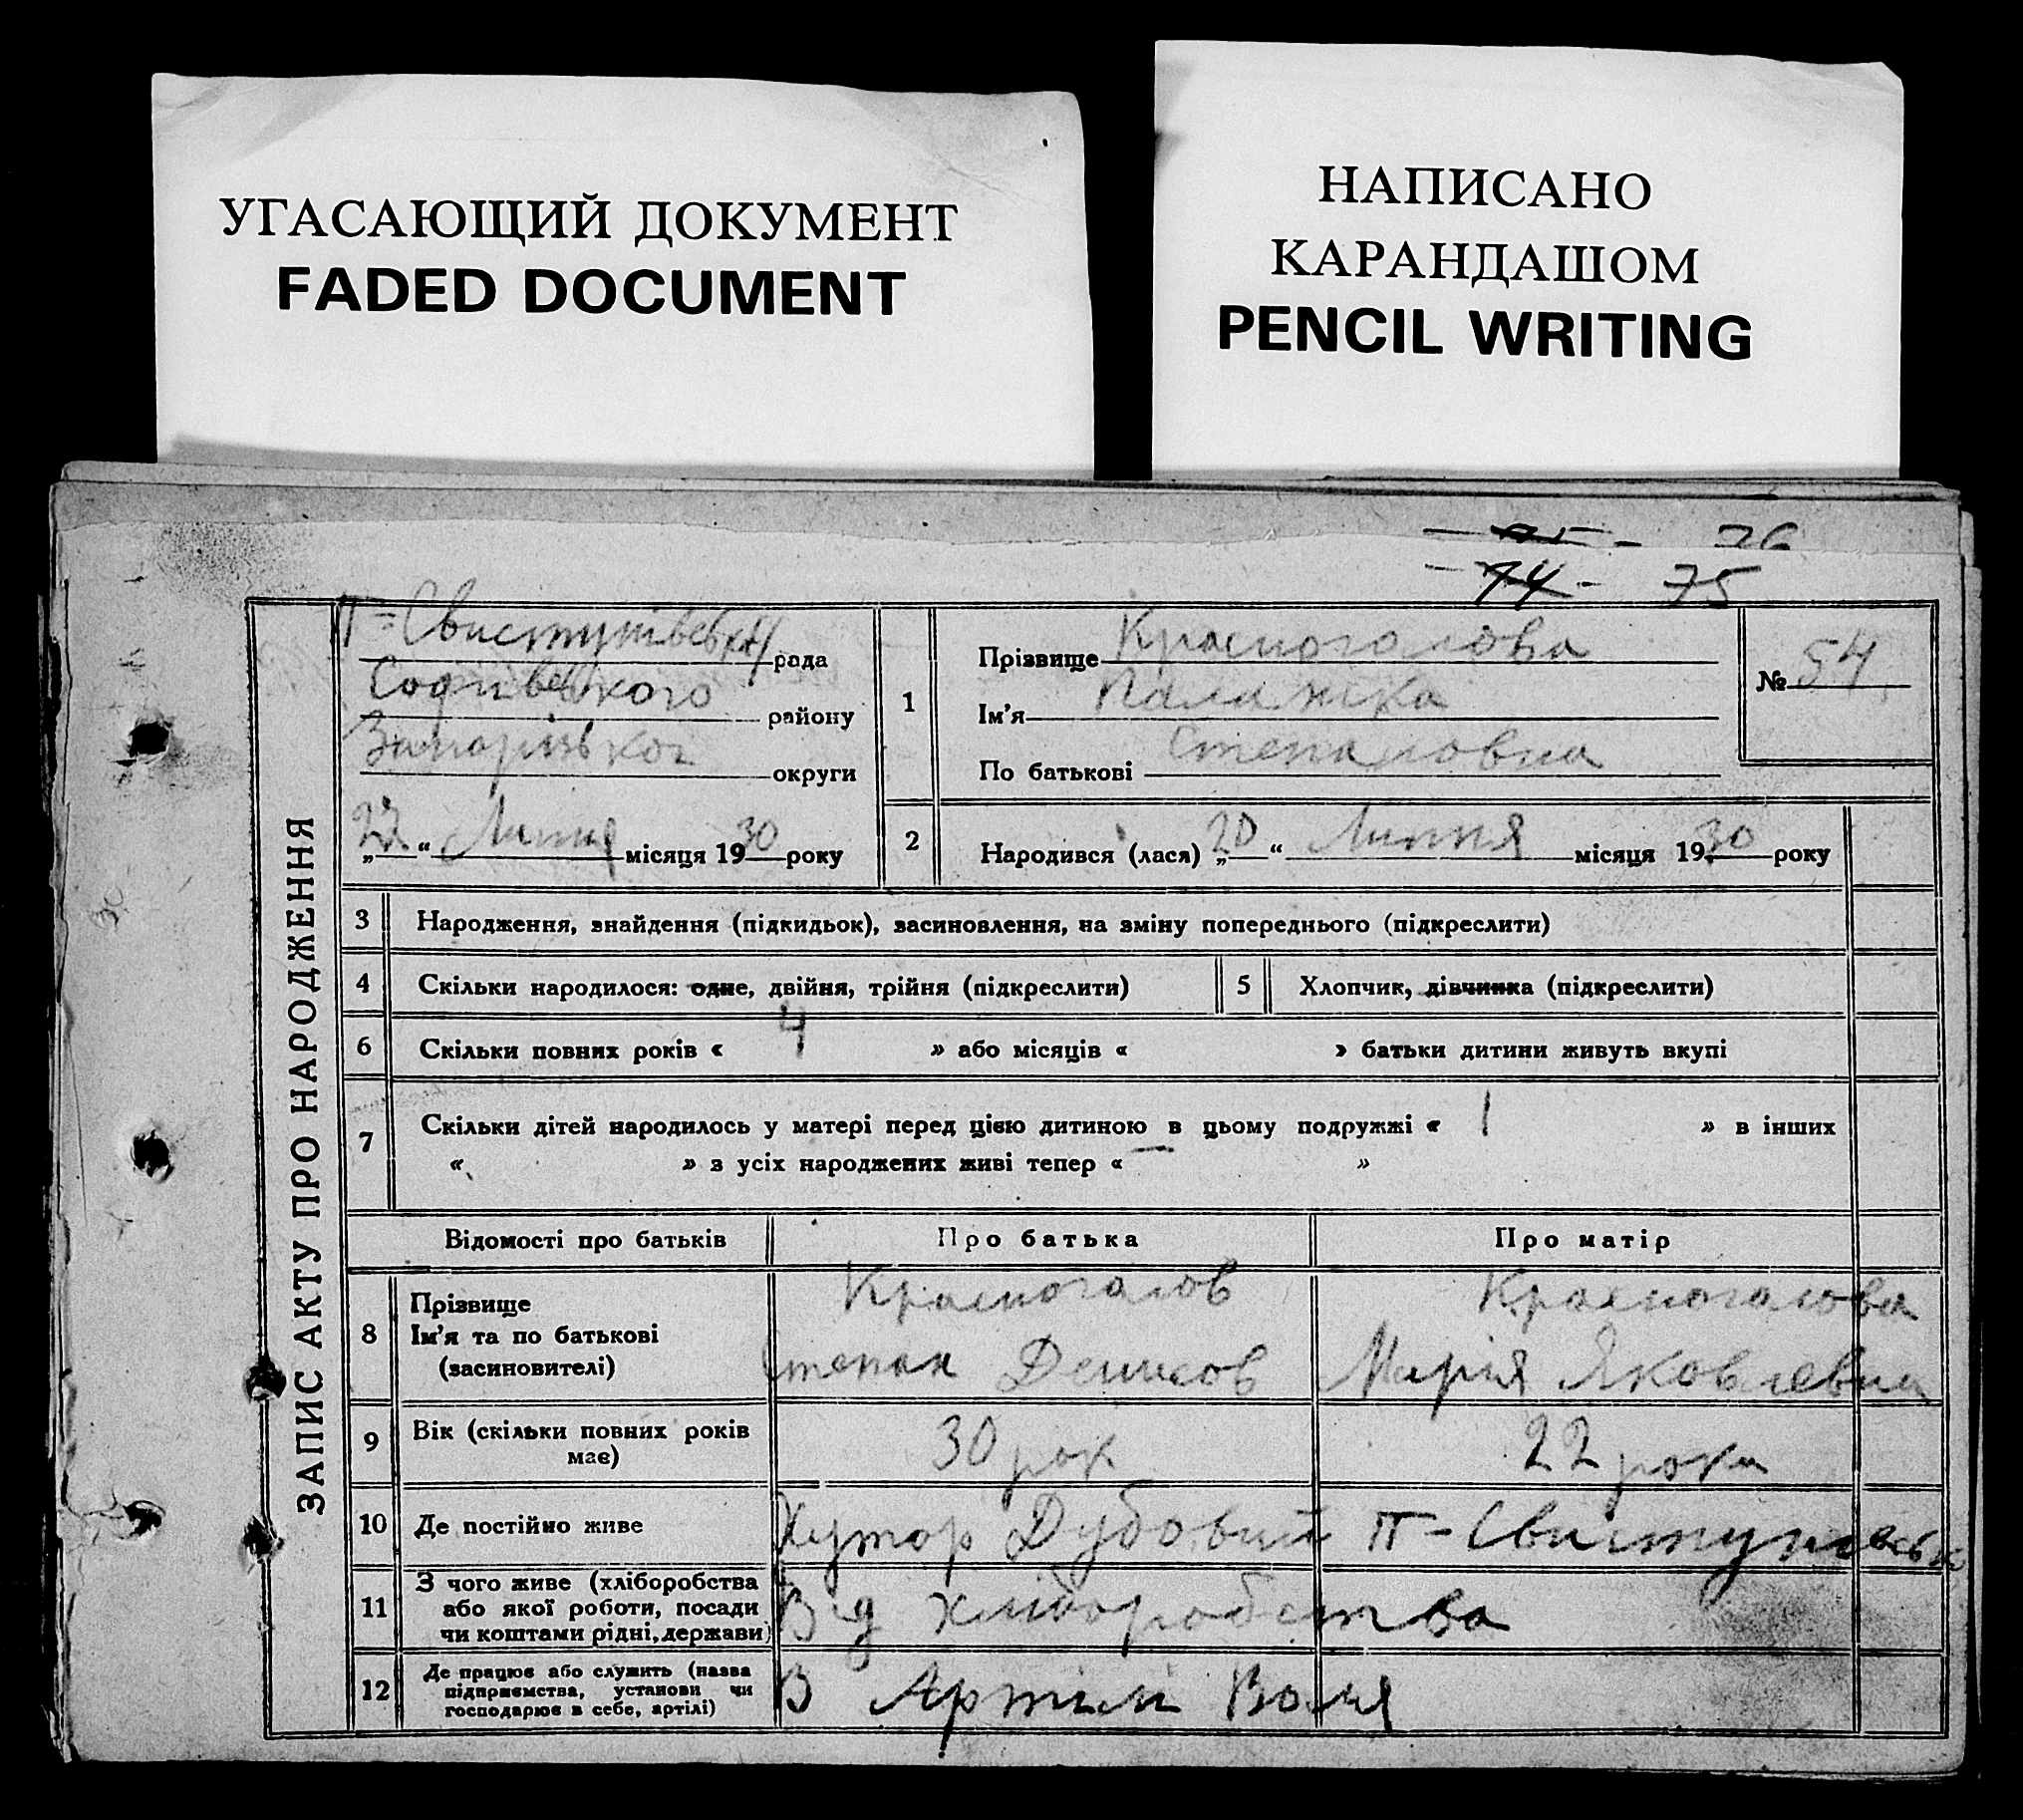 УГАСАЮЩИЙ ДОКУМЕНТ
FADED DOCUMENT
НАПИСАНО
КАРАНДАШОМ
PENCIL WRITING
76
74 75
ЗАПИС АКТУ ПРО НАРОДЖЕННЯ
рада
Софивського району
округи
„22“ Липня місяця 1930 року
1 Прізвище Красноголова
Ім’я
По батькові Степановна
№ 54
2 Народився (лася) „20“ Липня місяця 1930 року
3 Народження, знайдення (підкидьок), засиновлення, на зміну попереднього (підкреслити)
4 Скільки народилося: одне, двійня, трійня (підкреслити) 5 Хлопчик, дівчинка (підкреслити)
6 Скільки повних років « 4 » або місяців « » батьки дитини живуть вкупі
7 Скільки дітей народилось у матері перед цією дитиною в цьому подружжі « 1 » в інших
« » з усіх народжених живі тепер « — »
Відомості про батьків Про батька Про матір
8 Прізвище Красноголов Красноголова
Ім’я та по батькові Степан Денисов Марія Яковлевна
(засиновителі)
9 Вік (скільки повних років має) 30 рок 22 роки
10 Де постійно живе Хутор Дубовий
11 З чого живе (хліборобства
або якої роботи, посади Від хліборобства
чи коштами рідні, держави)
12 Де працює або служить (назва
підприємства, установи чи В Артілі Воля
господарює в себе, артілі)